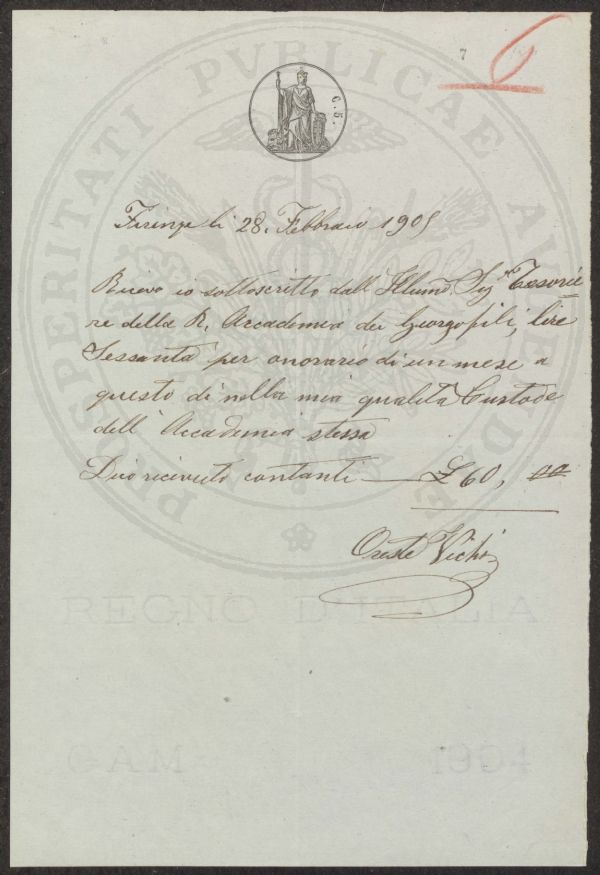 7
6
PROSPERITATI PVBLICAE AVGENDAE
C. 5.
Firenze li 28. Febbraio 1905
Ricevo io sottoscritto dall' Illumo. Sigr. Tesorie
re della R. Accademia dei Georgofili, lire
Sessanta per onorario di un mese a
questo dì nella mia qualità Custode
dell' Accademia stessa
Dico ricevuto contanti — £ 60, 00
Oreste Vichi
REGNO D'ITALIA
GAM 1904